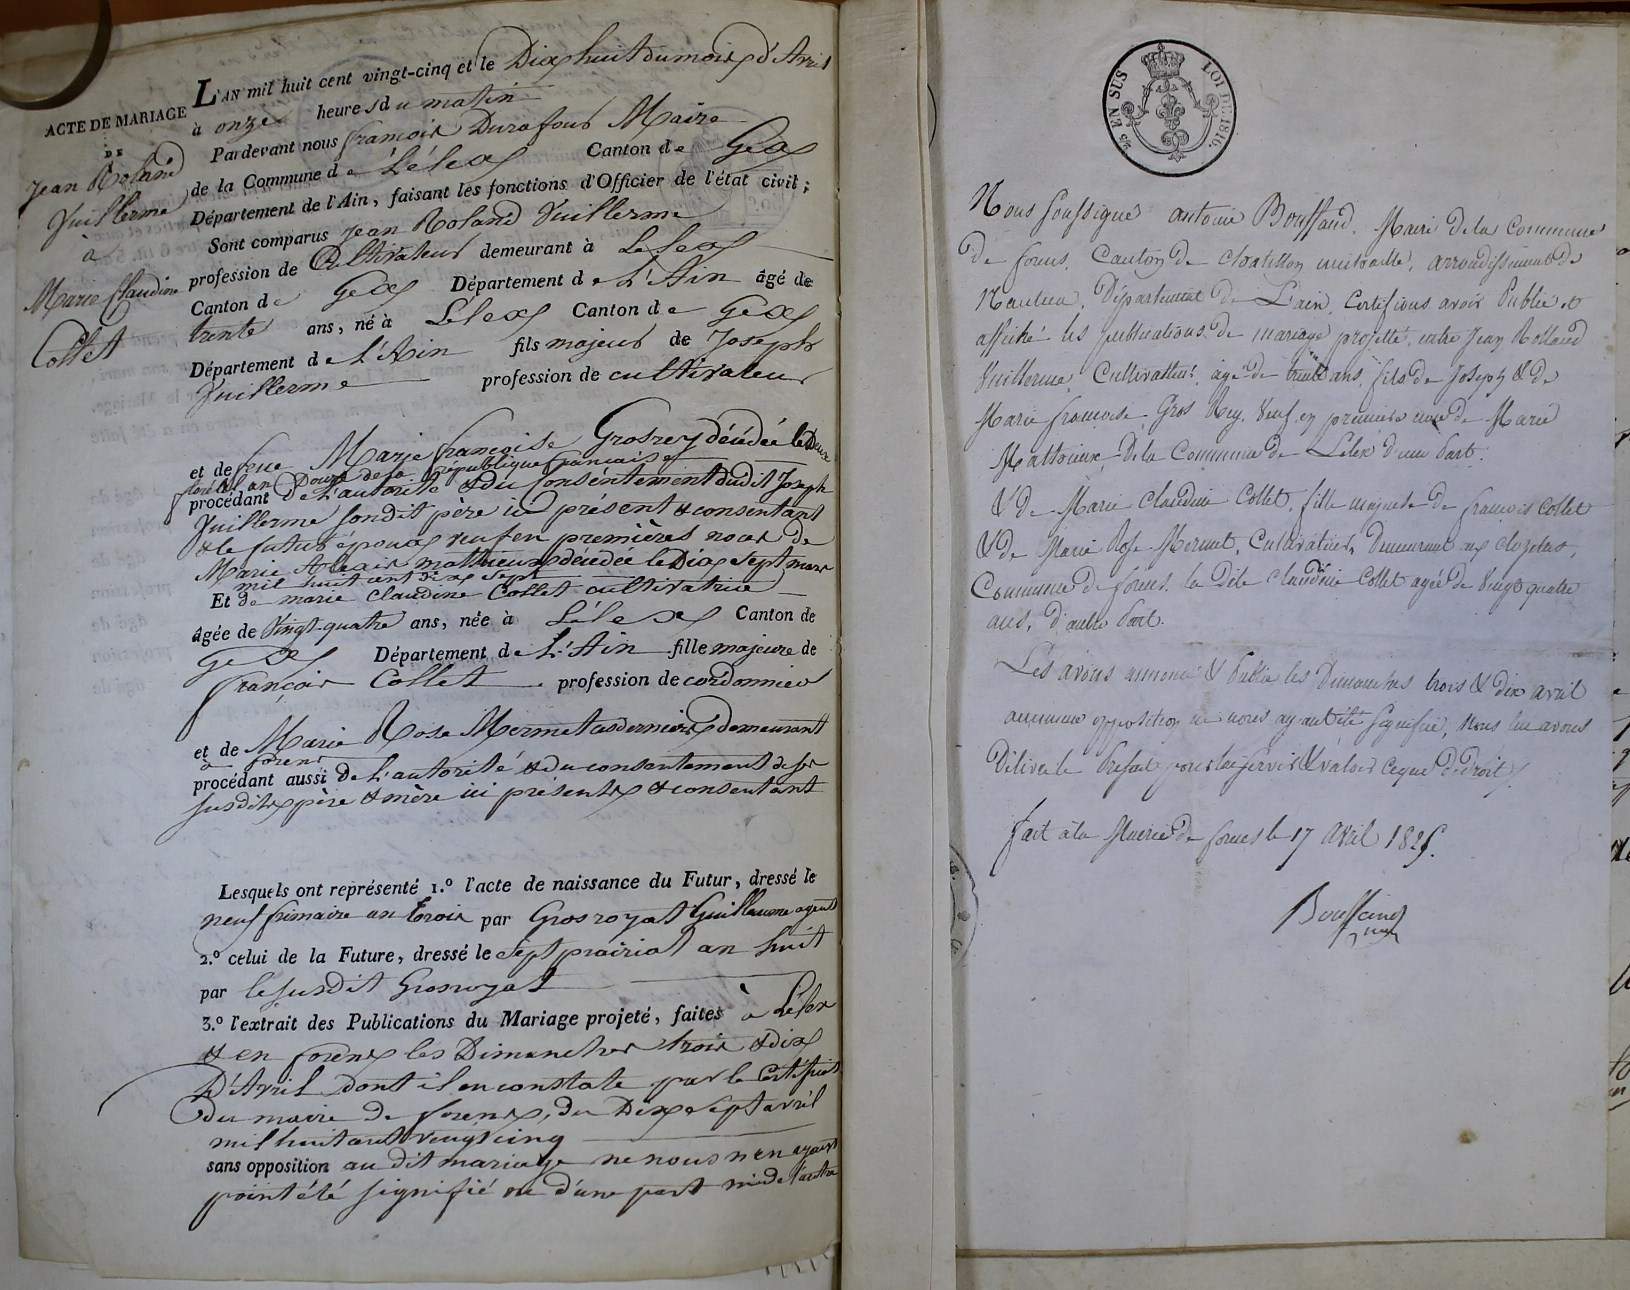 ACTE DE MARIAGE
DE
Jean Roland
Vuillerme
à
Marie Claudine
Collet
L'AN mil huit cent vingt-cinq et le Dix huit du mois d'Avril
à onze heures du matin
Pardevant nous françois Durafour Maire
de la Commune de Lélex Canton de Gex
Département de l'Ain, faisant les fonctions d'Officier de l'état civil;
Sont comparus Jean Roland Vuillerme
profession de Cultivateur demeurant à Lelex
Canton de Gex Département de L'Ain âgé de
trente ans, né à Lélex Canton de Gex
Département de L'Ain fils majeur de Joseph
Vuillerme profession de cultivateur
et de feue Marie françoise Grosrey décédée le Deux
floréal an Douze de la république française
procédant De L'autorité & du Consentement dudit Joseph
Vuillerme sondit père ici présent & consentant
& le futur époux veuf en premières noces de
Marie mathieux décédée le Dix sept mars
mil huit cent dix sept
Et de marie Claudine Collet cultivatrice
âgée de Vingt-quatre ans, née à Lélex Canton de
Gex Département de L'Ain fille majeure de
françois Collet profession de cordonnier
et de Marie Rose Mermet ces derniers demeurant
à forens
procédant aussi De L'autorité & du consentement de ses
susdits père & mère ici présents & consentant
Lesquels ont représenté 1.º l'acte de naissance du Futur, dressé le
neuf frimaire an trois par Grosroyat Guillaume agent
2.º celui de la Future, dressé le sept prairial an huit
par le susdit Grosroyat
3.º l'extrait des Publications du Mariage projeté, faites à Lélex
& en forens les Dimanches trois & dix
D'Avril dont il en constate par le Certificat
Du maire de forens, du Dix sept avril
mil huit cent vingt cinq
sans opposition au dit mariage ne nous n'en ayant
point été signifié ou d'une part ni de l'autre
45 EN SUS
LOI DE 1816.
Nous soussigné antoine Bouffand. Maire de la Commune
de forens, Canton de Chatillon michaille, arrondissement de
Nantua, Département de L'ain, Certifions avoir Publié et
affiché les publications de mariage projetté, entre Jean Rolland
Vuillerme, Cultivateur, agé de trente ans, fils de Joseph & de
Marie françoise Gros Rey, Veuf en premiere noce de Marie
Matthieux, De la Commune de Lelex d'une Part.
& De Marie Claudine Collet, fille majeure de françois Collet
& De Marie Rose Mermet, Cultivateurs, Demeurant aux
Commune de forens. la Dite Claudine Collet agée de Vingt quatre
ans, D'autre Part.
Les avons annoncé & Publié les Dimanches trois & dix avril
aucunne opposition ne nous ayant été signifiée, Nous lui avons
Délivré le Présent pour lui servir & valoir ce que De Droit
fait à la Mairie de forens le 17 avril 1825.
Bouffand